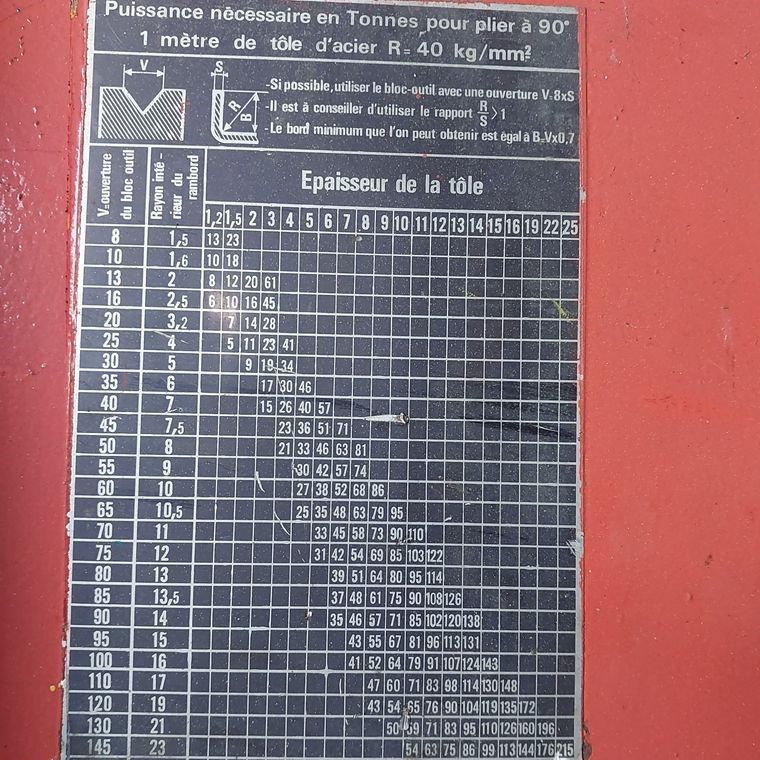 Puissance nécessaire en Tonnes pour plier à 90°
1 mètre de tôle d'acier R=40 kg/mm²
V
S
R
B
-Si possible, utiliser le bloc-outil avec une ouverture V=8xS
-Il est à conseiller d'utiliser le rapport R/S >1
-Le bord minimum que l'on peut obtenir est égal à B=Vx0,7
V=ouverture du bloc outil
Rayon inté-rieur du rambord
Epaisseur de la tôle
1,2 1,5 2 3 4 5 6 7 8 9 10 11 12 13 14 15 16 19 22 25
8 1,5 13 23
10 1,6 10 18
13 2 8 12 20 61
16 2,5 6 10 16 45
20 3,2 7 14 28
25 4 5 11 23 41
30 5 9 19 34
35 6 17 30 46
40 7 15 26 40 57
45 7,5 23 36 51 71
50 8 21 33 46 63 81
55 9 30 42 57 74
60 10 27 38 52 68 86
65 10,5 25 35 48 63 79 95
70 11 33 45 58 73 90 110
75 12 31 42 54 69 85 103 122
80 13 39 51 64 80 95 114
85 13,5 37 48 61 75 90 108 126
90 14 35 46 57 71 85 102 120 138
95 15 43 55 67 81 96 113 131
100 16 41 52 64 79 91 107 124 143
110 17 47 60 71 83 98 114 130 148
120 19 43 54 65 76 90 104 119 135 172
130 21 50 59 71 83 95 110 126 160 196
145 23 54 63 75 86 99 113 144 176 215